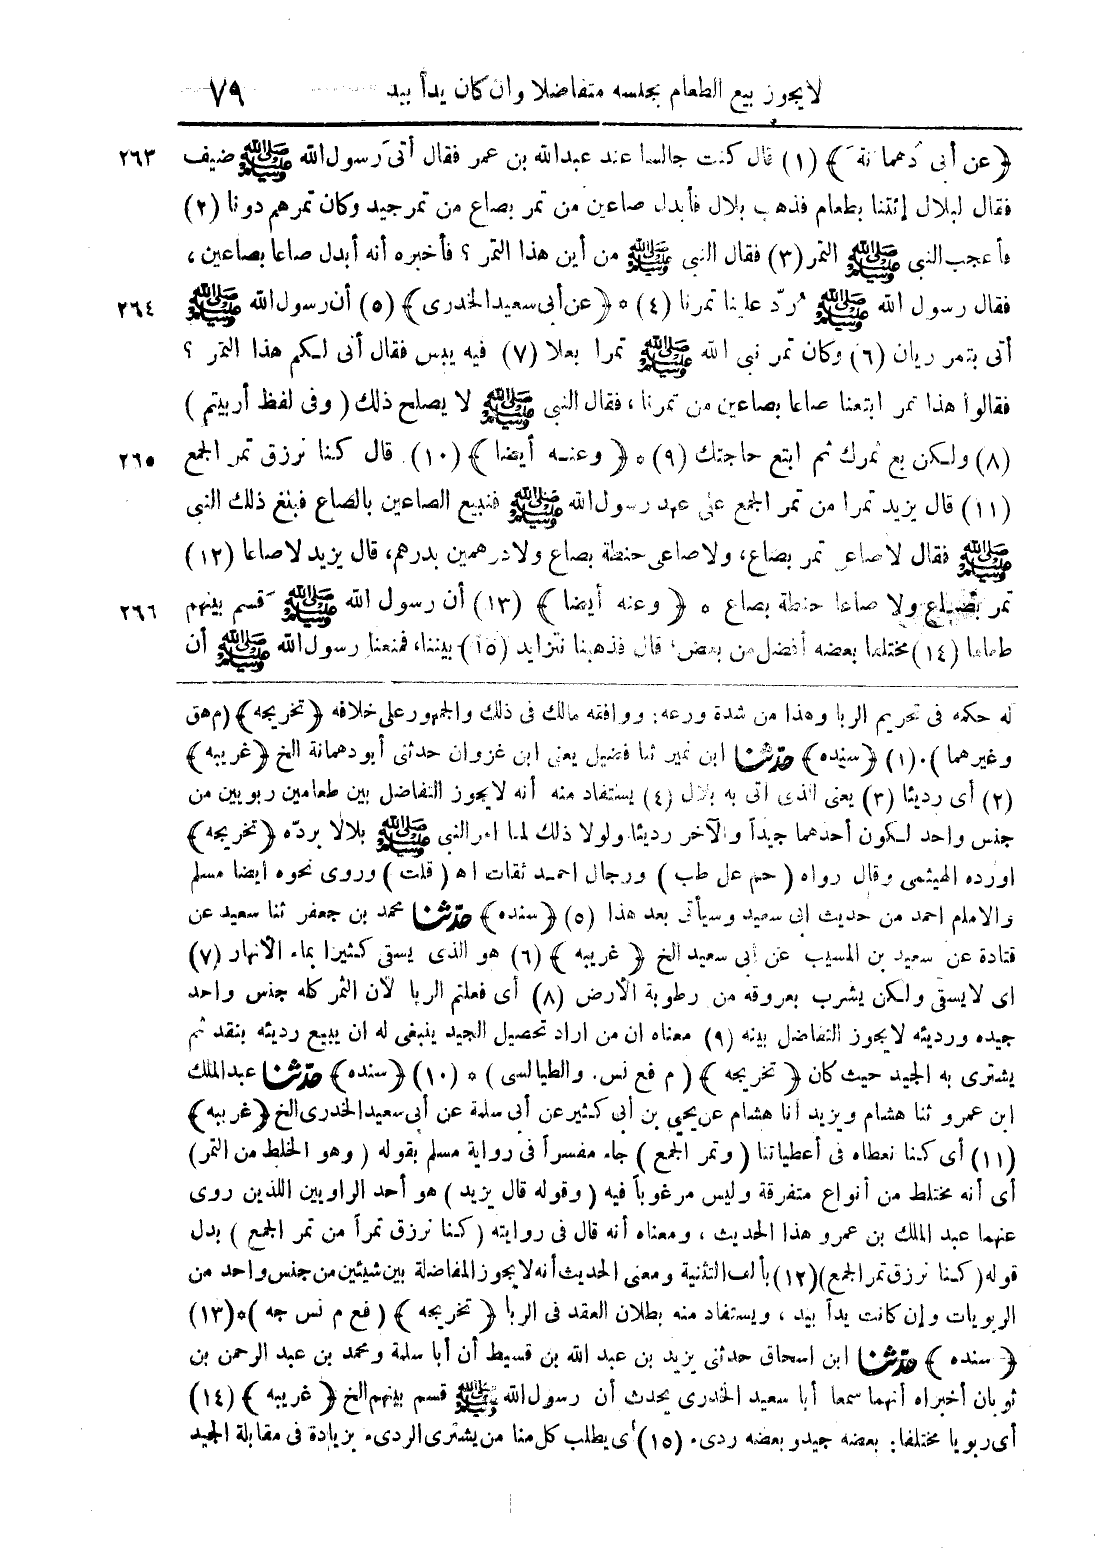 لايجوز بيع الطعام بجنسه متفاضلا وان كان يدأ بيد ٧٩
٢٦٣ ﴿عن أبى دُهمانة﴾ (١) قال كنت جالسا عند عبدالله بن عمر فقال أتى رسول الله ﷺ ضيف
فقال لبلال إئتنا بطعام فذهب بلال فأبدل صاعين من تمر بصاع من تمر جيد وكان تمرهم دونا (٢)
فأعجب النبى ﷺ التمر (٣) فقال النبى ﷺ من أين هذا التمر ؟ فأخبره أنه أبدل صاعا بصاعين ،
٢٦٤ فقال رسول الله ﷺ رُدّ علينا تمرنا (٤) * ﴿عن أبى سعيد الخدرى﴾ (٥) أن رسول الله ﷺ
أتى بتمر ريان (٦) وكان تمر نبى الله ﷺ تمرا بعلا (٧) فيه يبس فقال أنى لكم هذا التمر ؟
فقالوا هذا تمر ابتعنا صاعا بصاعين من تمرنا ، فقال النبى ﷺ لا يصلح ذلك ( وفى لفظ أربيتم )
٢٦٥ (٨) ولكن بع تمرك ثم ابتع حاجتك (٩) * ﴿ وعنه أيضا ﴾ (١٠) قال كنا نرزق تمر الجمع
(١١) قال يزيد تمرا من تمر الجمع على عهد رسول الله ﷺ فنبيع الصاعين بالصاع فبلغ ذلك النبى
ﷺ فقال لاصاعى تمر بصاع، ولاصاعى حنطة بصاع ولادرهمين بدرهم، قال يزيد لاصاعا (١٢)
٢٦٦ تمر بصاع ولا صاعا حنطة بصاع * ﴿ وعنه أيضا ﴾ (١٣) أن رسول الله ﷺ قسم بينهم
طعاما (١٤) مختلفا بعضه أفضل من بعض، قال فذهبنا نتزايد (١٥) بيننا، فمنعنا رسول الله ﷺ أن
له حكمه فى تحريم الربا وهذا من شدة ورعه: ووافقه مالك فى ذلك والجمهور على خلافه ﴿تخريجه﴾ (م هق
وغيرهما ).(١) ﴿سنده﴾ حدّثنا ابن نمير ثنا فضيل يعنى ابن غزوان حدثنى أبو دهمانة الخ ﴿غريبه﴾
(٢) أى رديئا (٣) يعنى الذى اتى به بلال (٤) يستفاد منه أنه لايجوز التفاضل بين طعامين ربويين من
جنس واحد لكون أحدهما جيداً والآخر رديئا ولولا ذلك لما امر النبى ﷺ بلالا بردّه ﴿تخريجه﴾
اورده الهيثمى وقال رواه ( حم عل طب ) ورجال احمد ثقات اه ( قلت ) وروى نحوه ايضا مسلم
والامام احمد من حديث ابى سعيد وسيأتى بعد هذا (٥) ﴿سنده﴾ حدّثنا محمد بن جعفر ثنا سعيد عن
قتادة عن سعيد بن المسيب عن أبى سعيد الخ ﴿ غريبه ﴾ (٦) هو الذى يسقى كثيرا بماء الأنهار (٧)
اى لايسقى ولكن يشرب بعروقه من رطوبة الأرض (٨) أى فعلتم الربا لأن التمر كله جنس واحد
جيده ورديئه لايجوز التفاضل بينه (٩) معناه ان من اراد تحصيل الجيد ينبغى له ان يبيع رديئه بنقد ثم
يشترى به الجيد حيث كان ﴿ تخريجه ﴾ ( م فع نس. والطيالسى ) * (١٠) ﴿سنده﴾ حدّثنا عبدالملك
ابن عمرو ثنا هشام ويزيد انا هشام عن يحيى بن أبى كثير عن أبى سلمة عن أبى سعيد الخدرى الخ ﴿غريبه﴾
(١١) أى كنا نعطاه فى أعطياتنا ( وتمر الجمع ) جاء مفسراً فى رواية مسلم بقوله ( وهو الخلط من التمر)
أى أنه مختلط من أنواع متفرقة وليس مرغوباً فيه ( وقوله قال يزيد ) هو أحد الراويين اللذين روى
عنهما عبد الملك بن عمرو هذا الحديث ، ومعناه أنه قال فى روايته ( كنا نرزق تمراً من تمر الجمع ) بدل
قوله ( كنا نرزق تمر الجمع ) (١٢) بألف التثنية ومعنى الحديث أنه لايجوز المفاضلة بين شيئين من جنس واحد من
الربويات وإن كانت يدأ بيد ، ويستفاد منه بطلان العقد فى الربا ﴿ تخريجه ﴾ ( فع م نس جه )*(١٣)
﴿ سنده ﴾ حدّثنا ابن اسحاق حدثنى يزيد بن عبد الله بن قسيط أن أبا سلمة ومحمد بن عبد الرحمن بن
ثوبان أخبراه أنهما سمعا أبا سعيد الخدرى يحدث أن رسول الله ﷺ قسم بينهم الخ ﴿ غريبه ﴾ (١٤)
أى ربويا مختلفا: بعضه جيد وبعضه ردىء (١٥) أى يطلب كل منا من يشترى الردىء بزيادة فى مقابلة الجيد